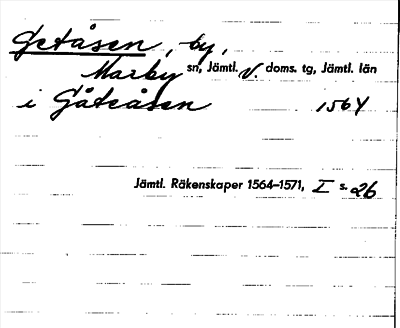 Getåsen, by,
Marby sn, Jämtl. V. doms. tg, Jämtl. län
i Gåteåsen 1564
Jämtl. Räkenskaper 1564–1571, I s. 26